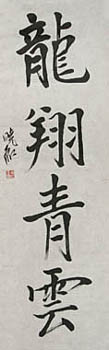 龍翔青雲